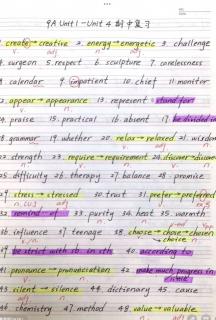 9A Unit1-Unit4 期中复习
1. create → creative 2. energy → energetic 3. challenge
4. surgeon 5. respect 6. sculpture 7. carelessness
8. calendar 9. impatient 10. chief 11. monitor
12. appear → appearance 13. represent = stand for
14. praise 15. practical 16. absent 17. be divided in
18. grammar 19. whether 20. relax → relaxed 21. wisdom
22. strength 23. require → requirement 24.
25. difficulty 26. therapy 27. balance 28. promise
29. stress → stressed 30. trust 31. prefer → preferred
32. remind of 33. purity 34. heat 35. warmth
36. influence 37. teenage 38. choose → chose → chosen
→ choice n
39. be strict with sb. in sth 40. according to
41. pronounce → pronunciation 42. make much progress in
43. silent → silence 44. dictionary 45. cause
46. chemistry 47. method 48. value → valuable